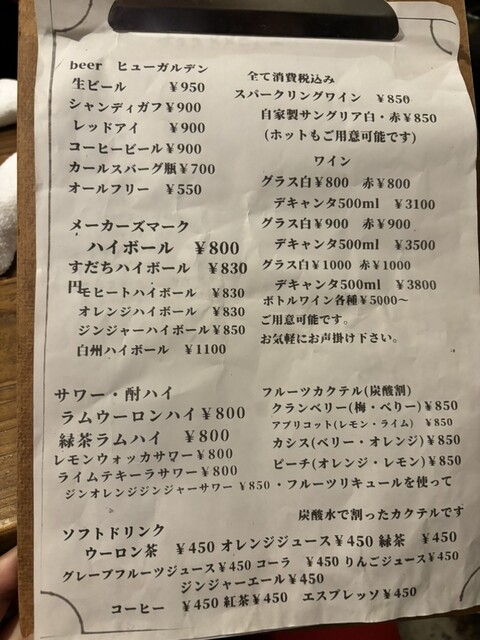 beer ヒューガルデン
生ビール ¥950
シャンディガフ¥900
レッドアイ ¥900
コーヒービール¥900
カールスバーグ瓶¥700
オールフリー ¥550
全て消費税込み
スパークリングワイン ¥850
自家製サングリア白・赤¥850
(ホットもご用意可能です)
ワイン
グラス白¥800 赤¥800
デキャンタ500ml ¥3100
グラス白¥900 赤¥900
デキャンタ500ml ¥3500
グラス白¥1000 赤¥1000
デキャンタ500ml ¥3800
ボトルワイン各種¥5000〜
ご用意可能です。
お気軽にお声掛け下さい。
メーカーズマーク
ハイボール ¥800
すだちハイボール ¥830
円
モヒートハイボール ¥830
オレンジハイボール ¥830
ジンジャーハイボール¥850
白州ハイボール ¥1100
サワー・酎ハイ
ラムウーロンハイ¥800
緑茶ラムハイ ¥800
レモンウォッカサワー¥800
ライムテキーラサワー¥800
ジンオレンジジンジャーサワー ¥850
フルーツカクテル(炭酸割)
クランベリー(梅・べりー)¥850
アプリコット(レモン・ライム) ¥850
カシス(ベリー・オレンジ)¥850
ピーチ(オレンジ・レモン)¥850
・フルーツリキュールを使って
炭酸水で割ったカクテルです
ソフトドリンク
ウーロン茶 ¥450 オレンジジュース¥450 緑茶 ¥450
グレープフルーツジュース¥450 コーラ ¥450 りんごジュース¥450
ジンジャーエール¥450
コーヒー ¥450 紅茶¥450 エスプレッソ¥450